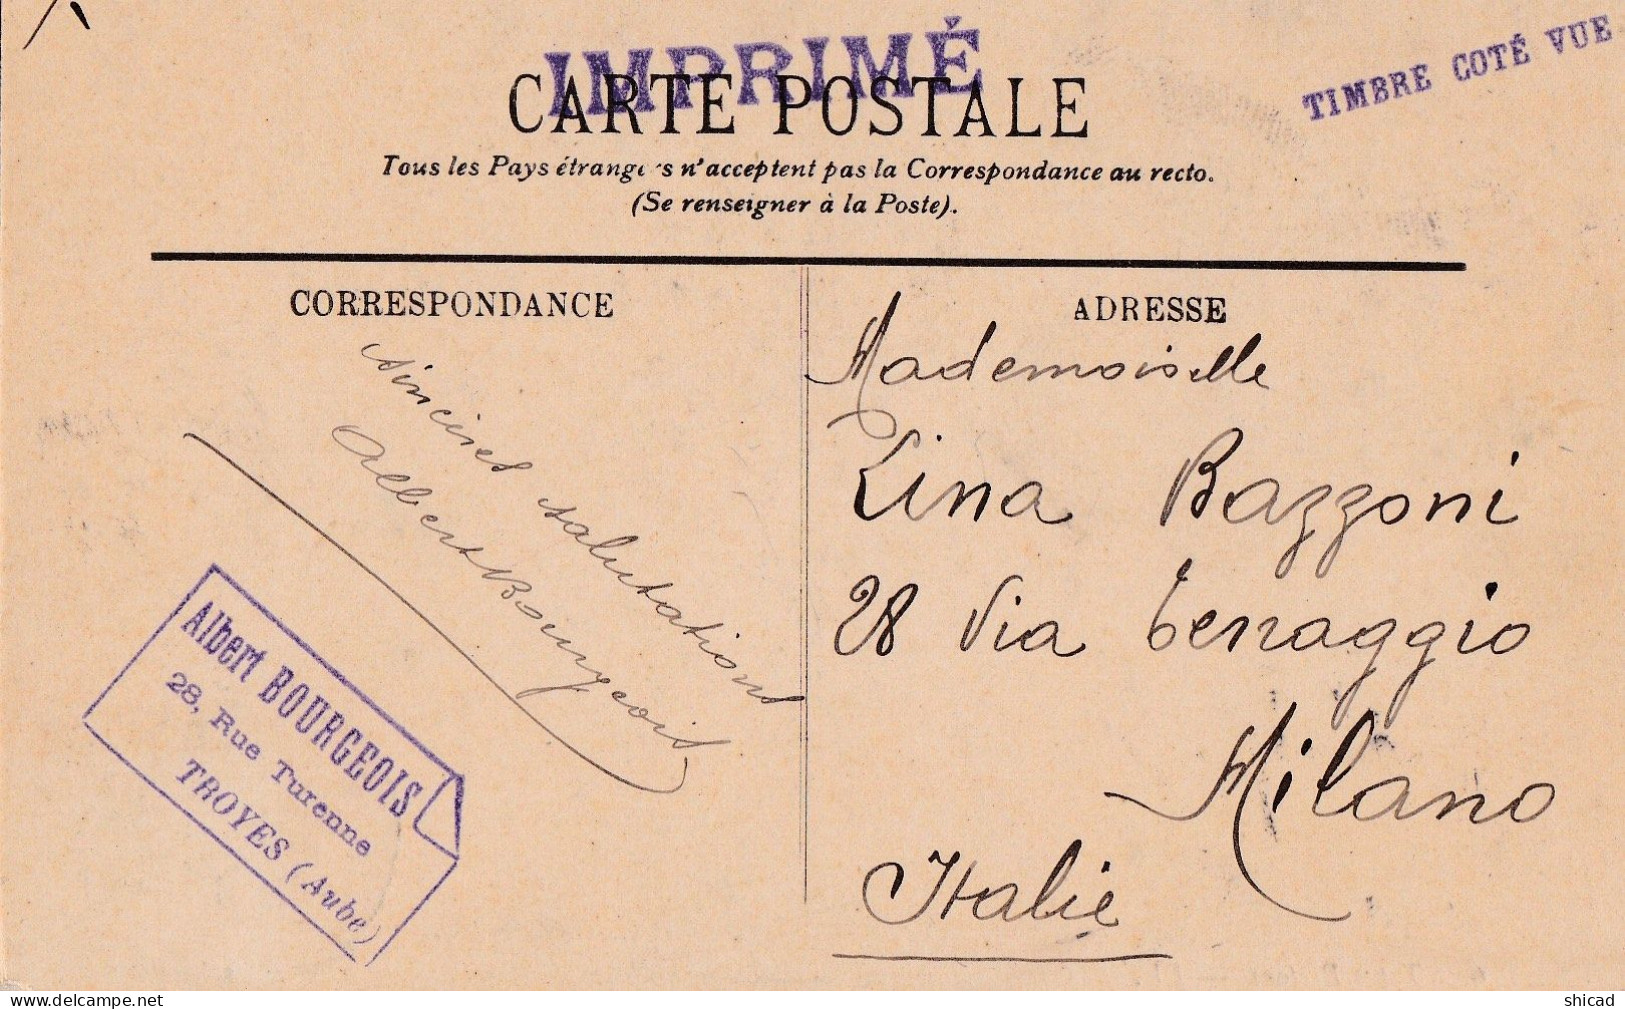 IMPRIMÉ
TIMBRE COTÉ VUE
CARTE POSTALE
Tous les Pays étrangers n'acceptent pas la Correspondance au recto.
(Se renseigner à la Poste).
CORRESPONDANCE
ADRESSE
Sincères salutations
Albert Bourgeois
Albert BOURGEOIS
28, Rue Turenne
TROYES (Aube)
Mademoiselle
Lina Bazzoni
28 Via Terraggio
Milano
Italie
www.delcampe.net
shicad